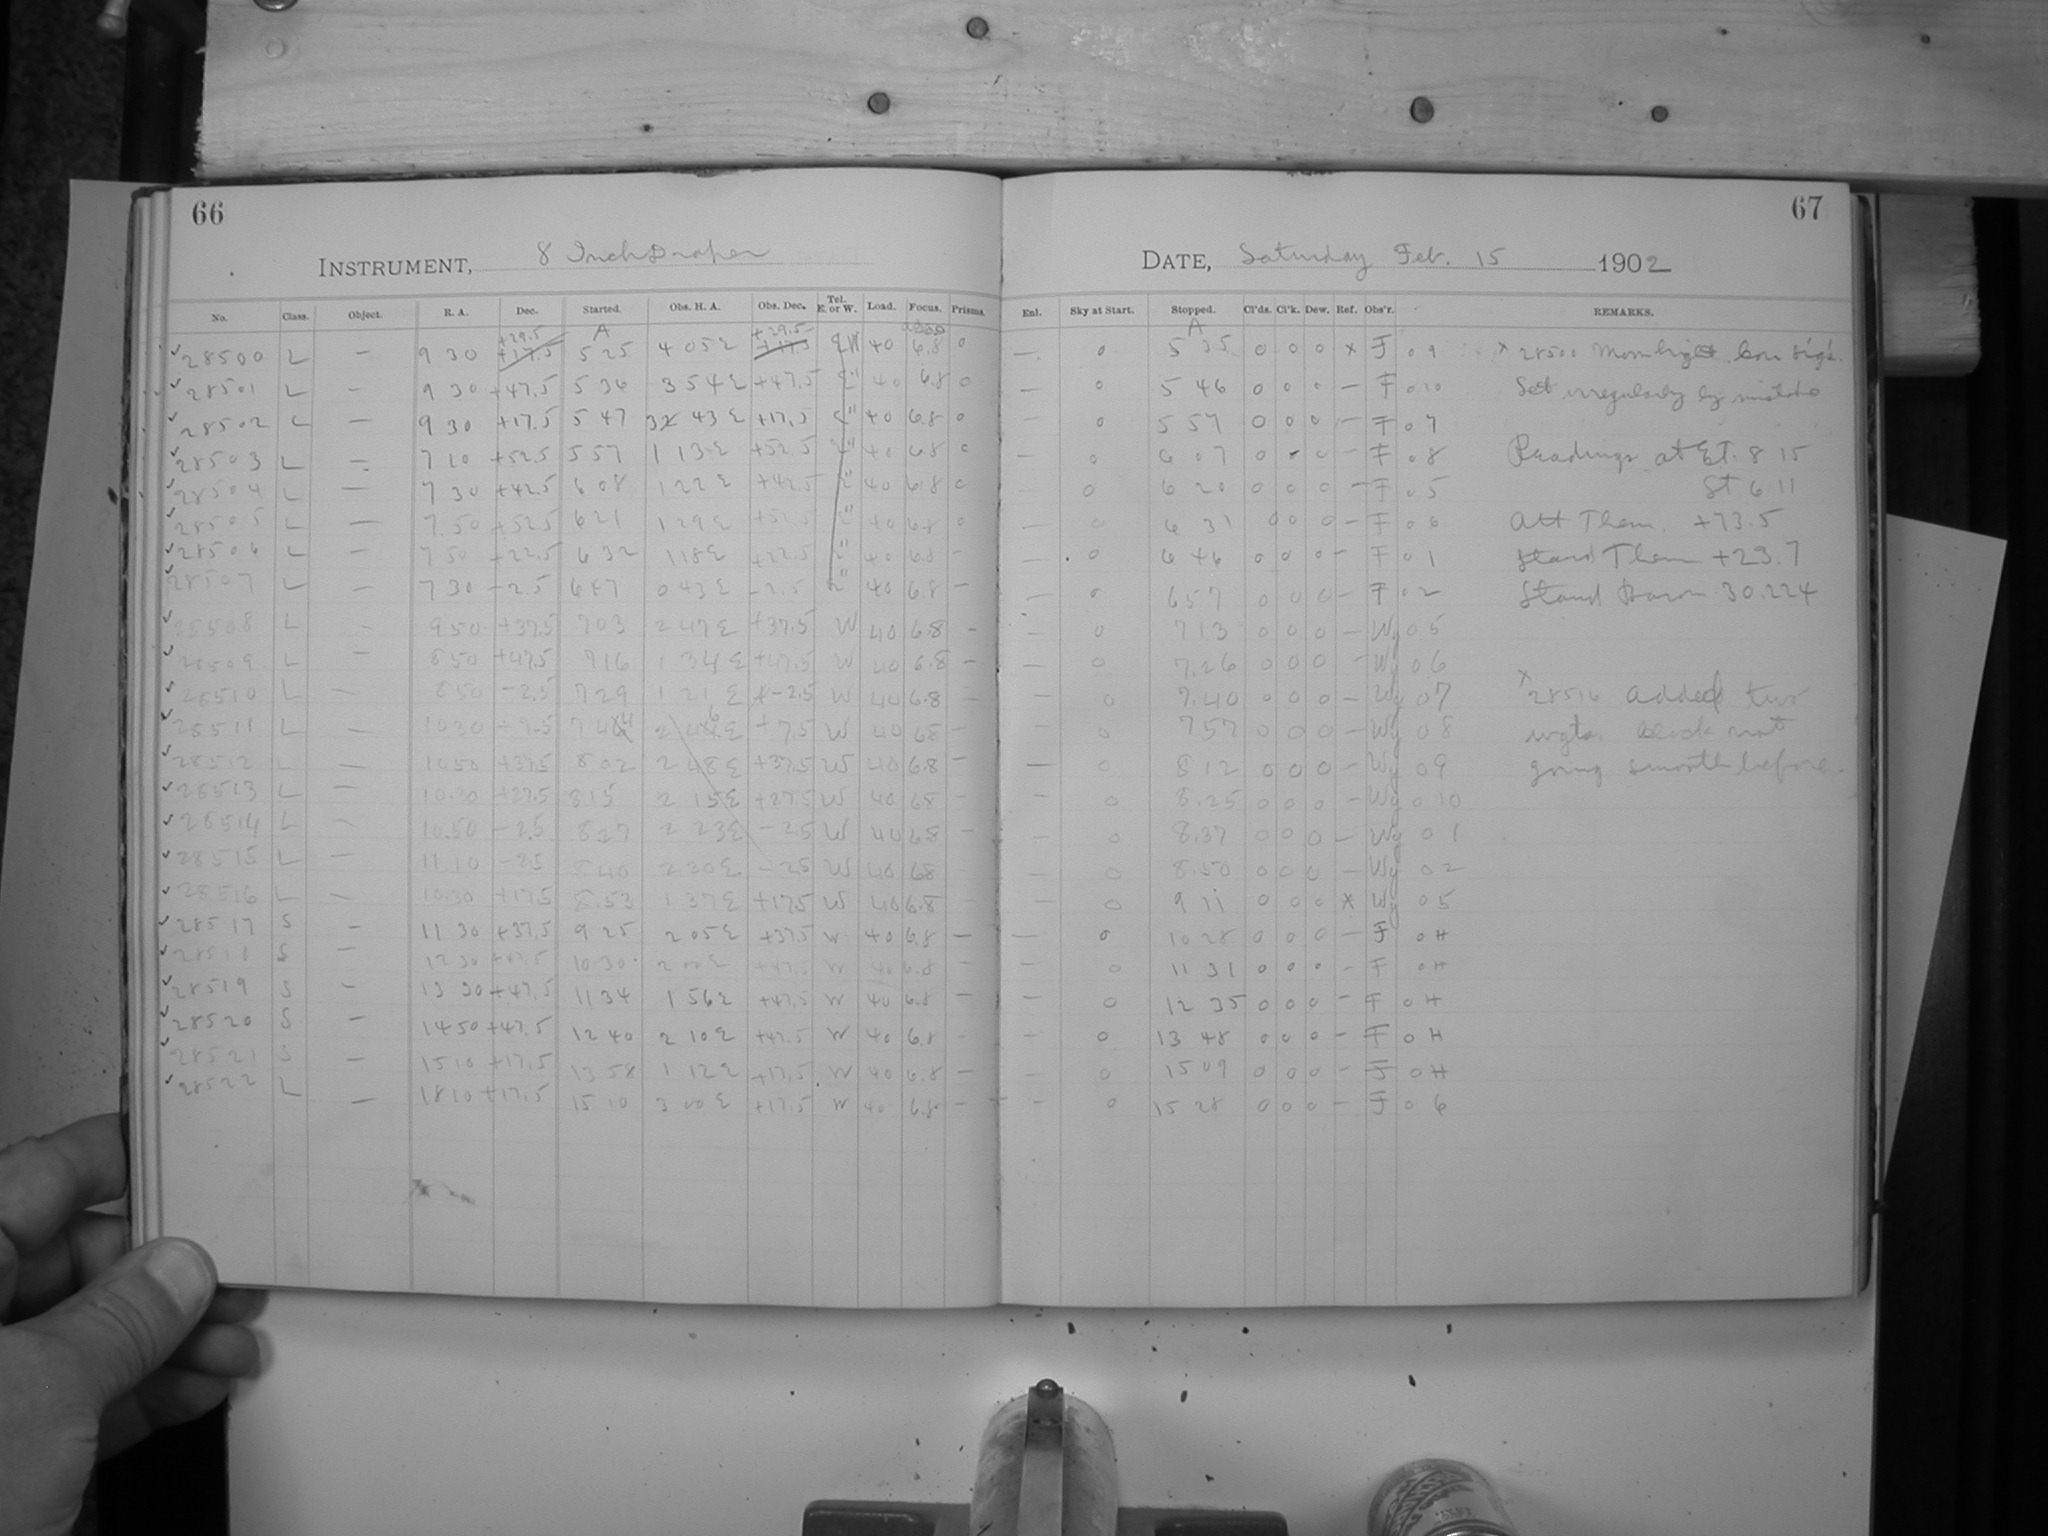 66
INSTRUMENT, 8 Inch Draper
No. Class. Object. R. A. Dec. Started. Obs. H. A. Obs. Dec. Tel. E. or W. Load. Focus. Prisms.
+29.5 A +29.5
28500 L — 9 30 +17.5 5 25 4 05 E +17.5 W 40 6.8 0
28501 L — 9 30 +47.5 5 36 3 54 E +47.5 " 40 6.8 0
28502 L — 9 30 +17.5 5 47 3 43 E +17.5 " 40 6.8 0
28503 L — 7 10 +52.5 5 57 1 13 E +52.5 " 40 6.8 0
28504 L — 7 30 +42.5 6 08 1 22 E +42.5 " 40 6.8 0
28505 L — 7 50 +52.5 6 21 1 29 E +52.5 " 40 6.8 0
28506 L — 7 50 +22.5 6 32 1 18 E +22.5 " 40 6.8 —
28507 L — 7 30 -2.5 6 47 0 43 E -2.5 " 40 6.8 —
28508 L — 9 50 +37.5 7 03 2 47 E +37.5 W 40 6.8 —
28509 L — 8 50 +47.5 7 16 1 34 E +47.5 W 40 6.8 —
28510 L — 8 50 -2.5 7 29 1 21 E -2.5 W 40 6.8 —
28511 L — 10 30 +7.5 7 44 2 46 E +7.5 W 40 68 —
28512 L — 10 50 +37.5 8 02 2 48 E +37.5 W 40 6.8 —
28513 L — 10.30 +27.5 8 15 2 15 E +27.5 W 40 68 —
28514 L — 10.50 -2.5 8 27 2 23 E -2.5 W 40 68 —
28515 L — 11.10 -2.5 8 40 2 30 E -2.5 W 40 68 —
28516 L — 10.30 +17.5 8.53 1 37 E +17.5 W 40 6.8 —
28517 S — 11 30 +37.5 9 25 2 05 E +37.5 W 40 6.8 —
28518 S — 12 30 +47.5 10 30 2 00 E +47.5 W 40 6.8 —
28519 S — 13 30 +47.5 11 34 1 56 E +47.5 W 40 6.8 —
28520 S — 14 50 +47.5 12 40 2 10 E +47.5 W 40 6.8 —
28521 S — 15 10 +17.5 13 58 1 12 E +17.5 W 40 6.8 —
28522 L — 18 10 +17.5 15 10 3 00 E +17.5 W 40 6.8 —
67
DATE, Saturday Feb. 15 1902
Enl. Sky at Start. Stopped. Cl'ds. Cl'k. Dew. Ref. Obs'r. REMARKS.
A
— 0 5 35 0 0 0 x F 09 x 28500 Moonlight
— 0 5 46 0 0 0 — F 010 Set irregularly by mistake
— 0 5 57 0 0 0 — F 07
— 0 6 07 0 0 0 — F 08 Readings at ET. 8 15
0 6 20 0 0 0 — F 05 St 6 11
— 0 6 31 0 0 0 — F 06 Att Them. +73.5
— 0 6 46 0 0 0 — F 01 Stand Them +23.7
— 0 6 57 0 0 0 — F 02 Stand Barom 30.224
— 0 7 13 0 0 0 — Wy 05
— 0 7.26 0 0 0 — Wy 06
— 0 7.40 0 0 0 — Wy 07 x 28516 added two
— 0 7 57 0 0 0 — Wy 08 wgts. clock not
— 0 8 12 0 0 0 — Wy 09 going smooth before.
— 0 8.25 0 0 0 — Wy 010
— 0 8.37 0 0 0 — Wy 01
— 0 8.50 0 0 0 — Wy 02
— 0 9 11 0 0 0 x Wy 05
— 0 10 28 0 0 0 — F 0H
— 0 11 31 0 0 0 — F 0H
— 0 12 35 0 0 0 — F 0H
— 0 13 48 0 0 0 — F 0H
— 0 15 09 0 0 0 — F 0H
— 0 15 28 0 0 0 — F 06